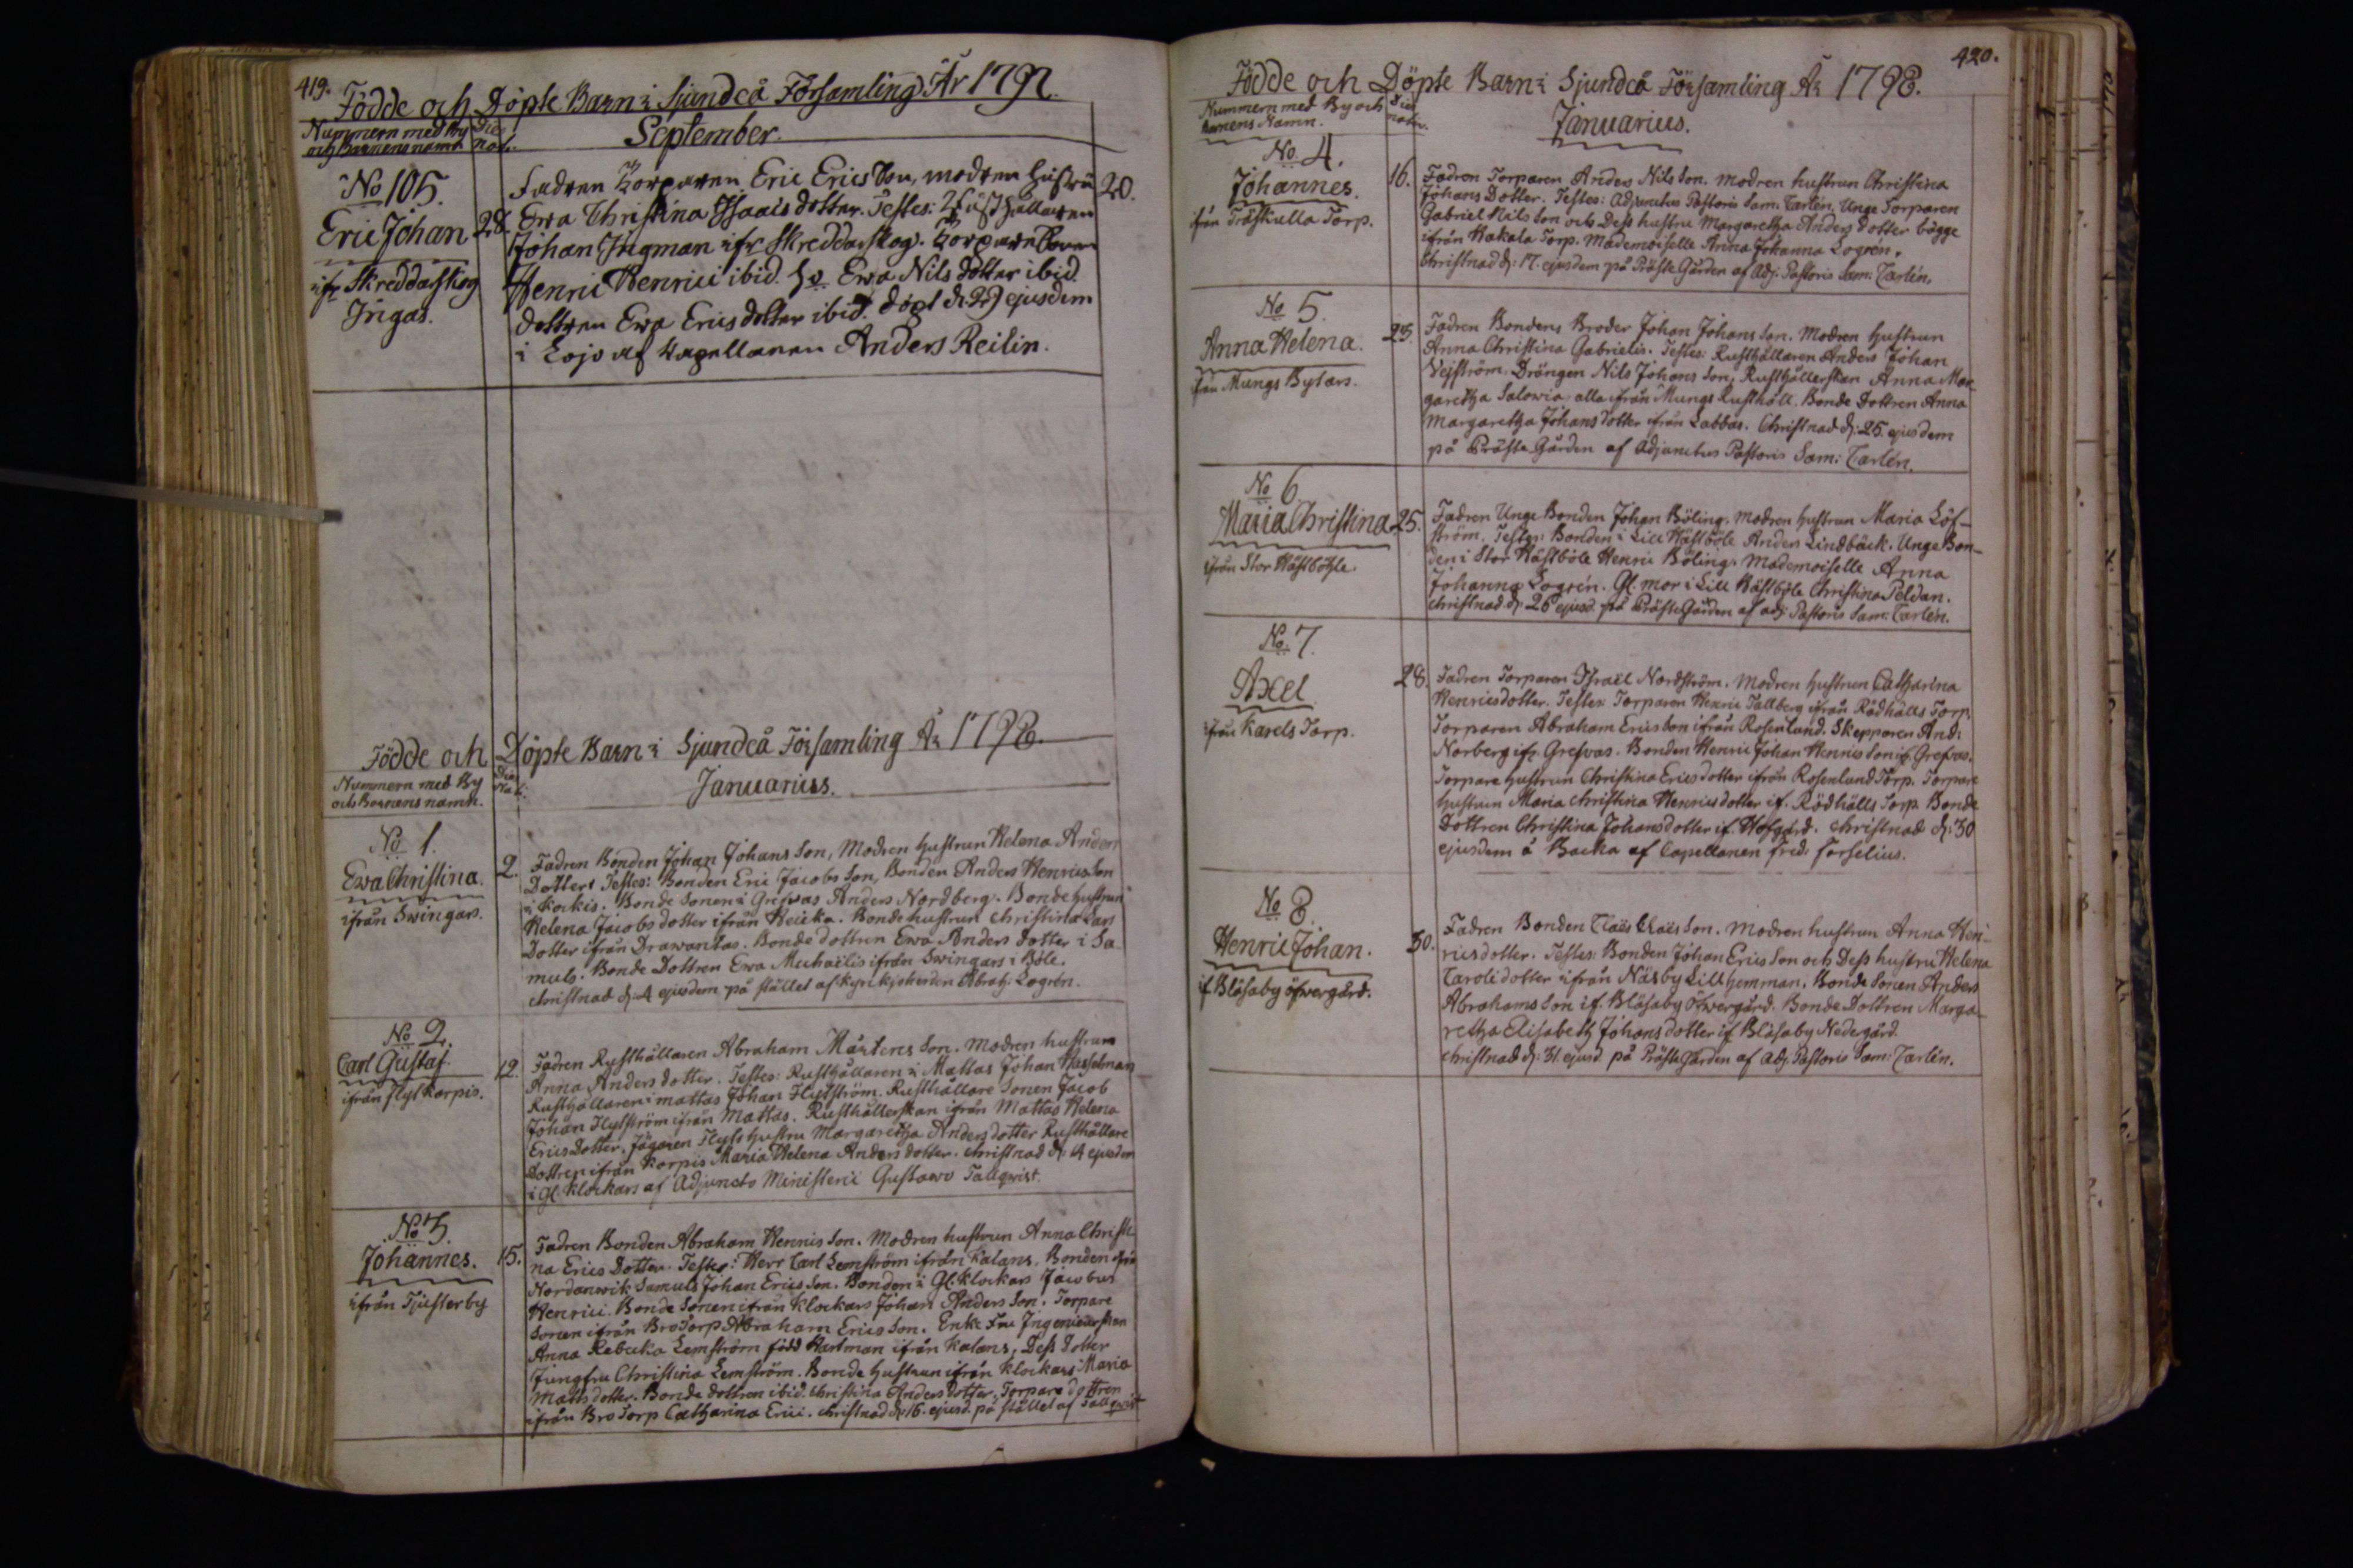 419.
Födde och Döpte Barn i Sjundeå Församling År 1797.
Nummern med By Dies
och Barnens namn nat.
September.
No 105.
Eric Johan 28.
ifr Skreddarskog
Ingas.
Fadren Torparen Eric Ericsson, modren Hustru 20.
Ewa Christina Isaacs dotter. Testes: Rusthållaren
Johan Ingman ifr Skreddarskog. Torparesonen
Henric Henrici ibid. Ewa Nils dotter ibid
dottren Ewa Erics dotter ibid. döpt d. 29 ejusdem
i Lojo af Kapellanen Anders Reilin.
Födde och Döpte Barn i Sjundeå Församling År 1798.
Nummern med By Dies
och Barnens namn. Nat.
Januarius.
No 1.
Ewa Christina.
ifrån Swingars.
2. Fadren Bonden Johan Johans Son, Modren hustrun Helena Anders
Dotter. Testes: Bonden Eric Jacobs Son, Bonden Anders Henrics Son
i Kockis. Bonde Sonen i Grefvas Anders Nordberg. Bonde hustrun
Helena Jacobs dotter ifrån Heicka. Bondehustrun Christina Lars
Dotter ifrån Drawantas. Bonde dottren Ewa Anders Dotter i Sa-
muls. Bonde Dottren Ewa Michaëlis ifrån Swingars i Böle.
christnad d: 4 ejusdem på stället af Kyrckjoherden Abrah: Logrén.
No 2.
Carl Gustaf.
ifrån Flyt Karpis.
12. Fadren Rysthållaren Abraham Mårtens Son. Modren hustrun
Anna Anders dotter. Testes: Rusthållaren i Mattas Johan Hasselman
Rusthållaren i mattas Johan Flytström. Rusthållare Sonen Jacob
Johan Flytström ifrån Mattas. Rusthållerskan ifrån Mattas Helena
Erics Dotter. Jägaren Flyts hustru Margaretha Anders dotter Rusthållare
Dottren ifrån Korpis Maria Helena Anders dotter. christnad d: 14 ejusdem
i Gl. Klockars af Adjuncto Ministerii Gustawo Tallqwist.
No 3.
Johannes.
ifrån Tjusterby
15. Fadren Bonden Abraham Henrics Son. Modren hustrun Anna Christi-
na Erics Dotter. Testes: Herr Carl Lemström ifrån Kalans. Bonden ifrån
Nordanwik Samuls Johan Erics Son. Bonden i Gl. Klockars Jacobus
Henrici. Bonde Sonen ifrån Klockars Johan Anders Son. Torpare
Sonen ifrån Bro Torp Abraham Erics Son. Enke Fru Ingenieurskan
Anna Rebecka Lemström född Hartman ifrån Kalans, Dess Dotter
Jungfru Christina Lemström. Bonde hustrun ifrån Klockars Maria
Matts dotter. Bonde dottren ibid. christina Anders dotter. Torpare dottren
ifrån Bro Torp Catharina Erici. christnad d: 16. ejusd. på stället af Tallqwist
420.
Födde och Döpte Barn i Sjundeå Församling År 1798.
Nummern med By och Dies
Barnens Namn. natu.
Januarius.
No. 4.
Johannes.
från Träskulla Torp.
16. Fadren Torparen Anders Nils Son. Modren hustrun Christina
Johans Dotter. Testes: Adjunctus Pastoris Sam: Carlén, Unge Torparen
Gabriel Nils Son och Dess hustru Margaretha Anders dotter bägge
ifrån Hakala Torp. Mademoiselle Anna Johanna Logrén.
Christnad d: 17. ejusdem på PrästeGården af Adj: Pastoris Sam: Carlén.
No 5.
Anna Helena.
från Mungs Bylars.
25. Fadren Bondens Broder Johan Johans Son. Modren hustrun
Anna Christina Gabrielis. Testes: Rusthållaren Anders Johan
Vejström. Drängen Nils Johans Son, Rusthållerskan Anna Mar-
garetha Salowia, alla ifrån Mungs Rusthåll. Bonde Dottren Anna
Margaretha Johans dotter ifrån Labbas. Christnad d: 25. ejusdem
på Präste Gården af Adjunctus Pastoris Sam: Carlén.
No 6.
Maria Christina.
ifrån Stor Hästböhle.
25. Fadren Unge Bonden Johan Böling. Modren hustrun Maria Löf-
ström. Testes: Bonden i Lill Hästböle Anders Lindbäck. Unge Bon-
den i Stor Hästböle Henric Böling. Mademoiselle Anna
Johanna Logrén. Gl. mor i Lill Hästböle Christina Peldan.
christnad d: 26 ejusd. på PrästeGården af adj: Pastoris Sam: Carlén.
No 7.
Axel
ifrån Karels Torp.
28. Fadren Torparen Israël Nordström. Modren hustrun Catharina
Henricsdotter. Testes: Torparen Henric Tallberg ifrån Rödhälls Torp.
Torparen Abraham Erics Son ifrån Rosenlund. Skepparen And:
Norberg ifr Grefvas. Bonden Henric Johan Henrics Son if. Grefvas.
Torpare hustrun Christina Erics dotter ifrån Rosenlund Torp. Torpare
hustrun Maria Christina Henrics dotter if. Rödhälls Torp. Bonde
Dottren Christina Johansdotter if. Hofgård. christnad d: 30
ejusdem å Backa af Capellanen Fred: Forselius.
No 8.
Henric Johan.
if. Blåsaby öfvergård.
30. Fadren Bonden Claës Claës Son. Modren hustrun Anna Hen-
ricsdotter. Testes: Bonden Johan Erics Son och Dess hustru Helena
Carolidotter ifrån Näsby Lillhemman. Bonde Sonen Anders
Abrahams Son if. Blåsaby Öfwergård. Bonde Dottren Marga-
retha Elisabeth Johans dotter if Blåsaby Nedegård
christnad d: 31. ejusd på Präste Gården af Adj. Pastoris Sam: Carlén.